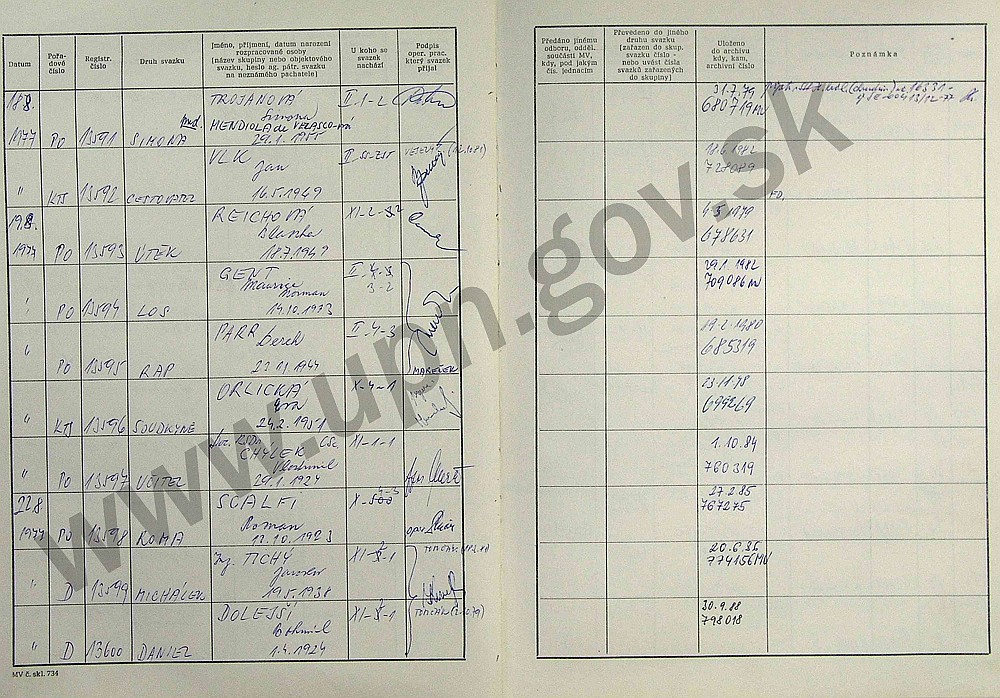 Datum
Pořa-
dové
číslo
Registr.
číslo
Druh svazku
Jméno, příjmení, datum narození
rozpracované osoby
(název skupiny nebo objektového
svazku, heslo ag. pátr. svazku
na neznámého pachatele)
U koho se
svazek
nachází
Podpis
oper. prac.
který svazek
přijal
Předáno jinému
odboru, odděl.
součásti MV,
kdy, pod jakým
čís. jednacím
Převedeno do jiného
druhu svazku
(zařazen do skup.
svazku číslo -
nebo uvést čísla
svazků zařazených
do skupiny)
Uloženo
do archivu
kdy, kam,
archivní číslo
Poznámka
18.8.
1977 PO 13591 SIMONA
TROJANOVÁ
Simona
MENDIOLA de VELASCO-VÁ
29.1.1955
II-1-2
31.7.79
680719 MV
" KTS 13592 CESTOVATEL
VLK
Jan
16.5.1949
18.6.1982
728089
19.8.
1977 PO 13593 ÚTĚK
REICHOVÁ
Blanka
18.7.1947
4.5.1979
678631
" PO 13594 LOS
GENT
Maurice
Norman
14.10.1933
II-4-3
3-2
29.1.1982
709086 MV
" PO 13595 RAP
PARR Derek
23.11.1944
II-4-3
MAREČEK
19.2.1980
685319
" KTS 13596 SOUDKYNĚ
ORLICKÁ
Eva
24.2.1951
X-4-1
23.11.78
699269
" PO 13597 UČITEL
CHÝLEK CSc.
Vlastimil
29.1.1924
XI-1-1
1.10.84
760319
22.8.
1977 PO 13598 ROMA
SCALFI
Roman
12.10.1923
27.2.85
767275
" D 13599 MICHÁLEK
Ing. TICHÝ
Jaromír
19.5.1938
20.6.85
774156 MV
" D 13600 DANIEL
DOLEJŠÍ
Bohumil
1.4.1924
30.9.88
798018
MV č. skl. 734
www.upn.gov.sk